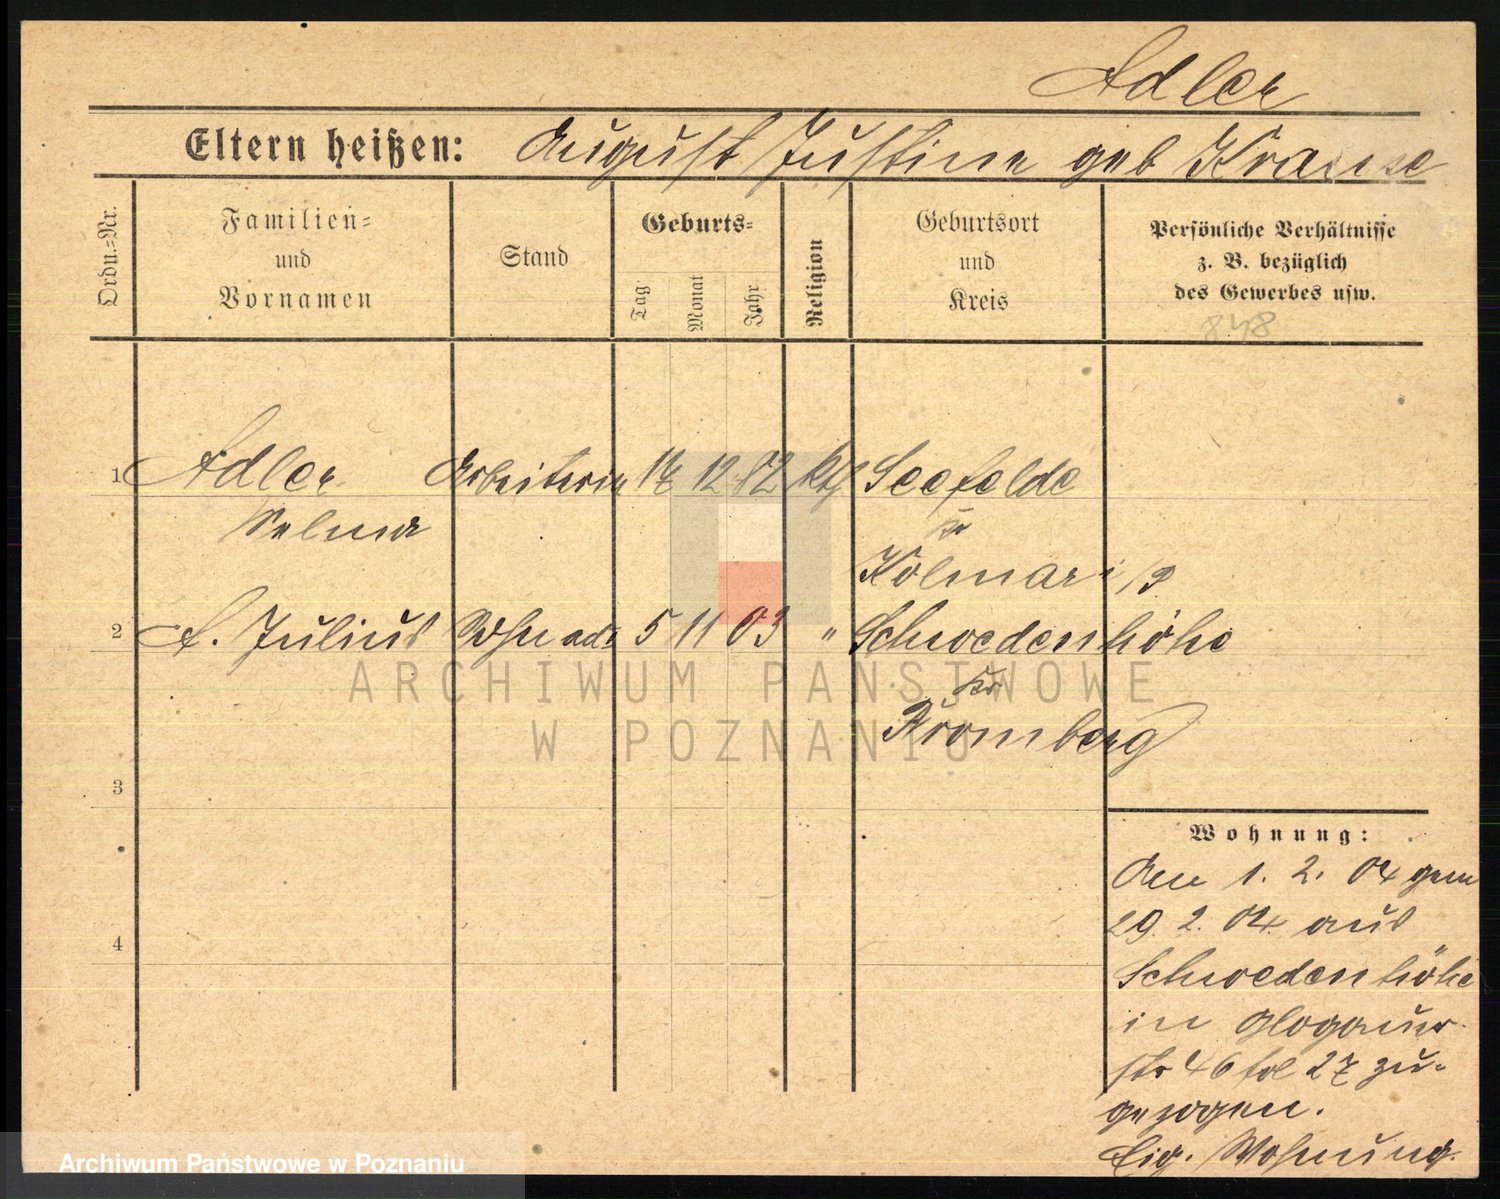 Adler
Eltern heißen: August Justine geb Krause
Ordn.-Nr.
Familien- und Vornamen
Stand
Geburts-
Tag
Monat
Jahr
Religion
Geburtsort und Kreis
Persönliche Verhältnisse
z. B. bezüglich
des Gewerbes usw.
848
1 Adler Arbeiterin 17 12 82 kth Seefelde
Selma Kr
Kolmar i/P
2 A. Julius Sohn 5 11 03 " Schwedenhöhe
Kr
Bromberg
ARCHIWUM PAŃSTWOWE
W POZNANIU
3
Wohnung:
Am 1. 2. 04 gem
29. 2. 04. aus
4
Schwedenhöhe
in Glogauer-
str 46 fol 27 zu-
gezogen.
Eig. Wohnung.
Archiwum Państwowe w Poznaniu